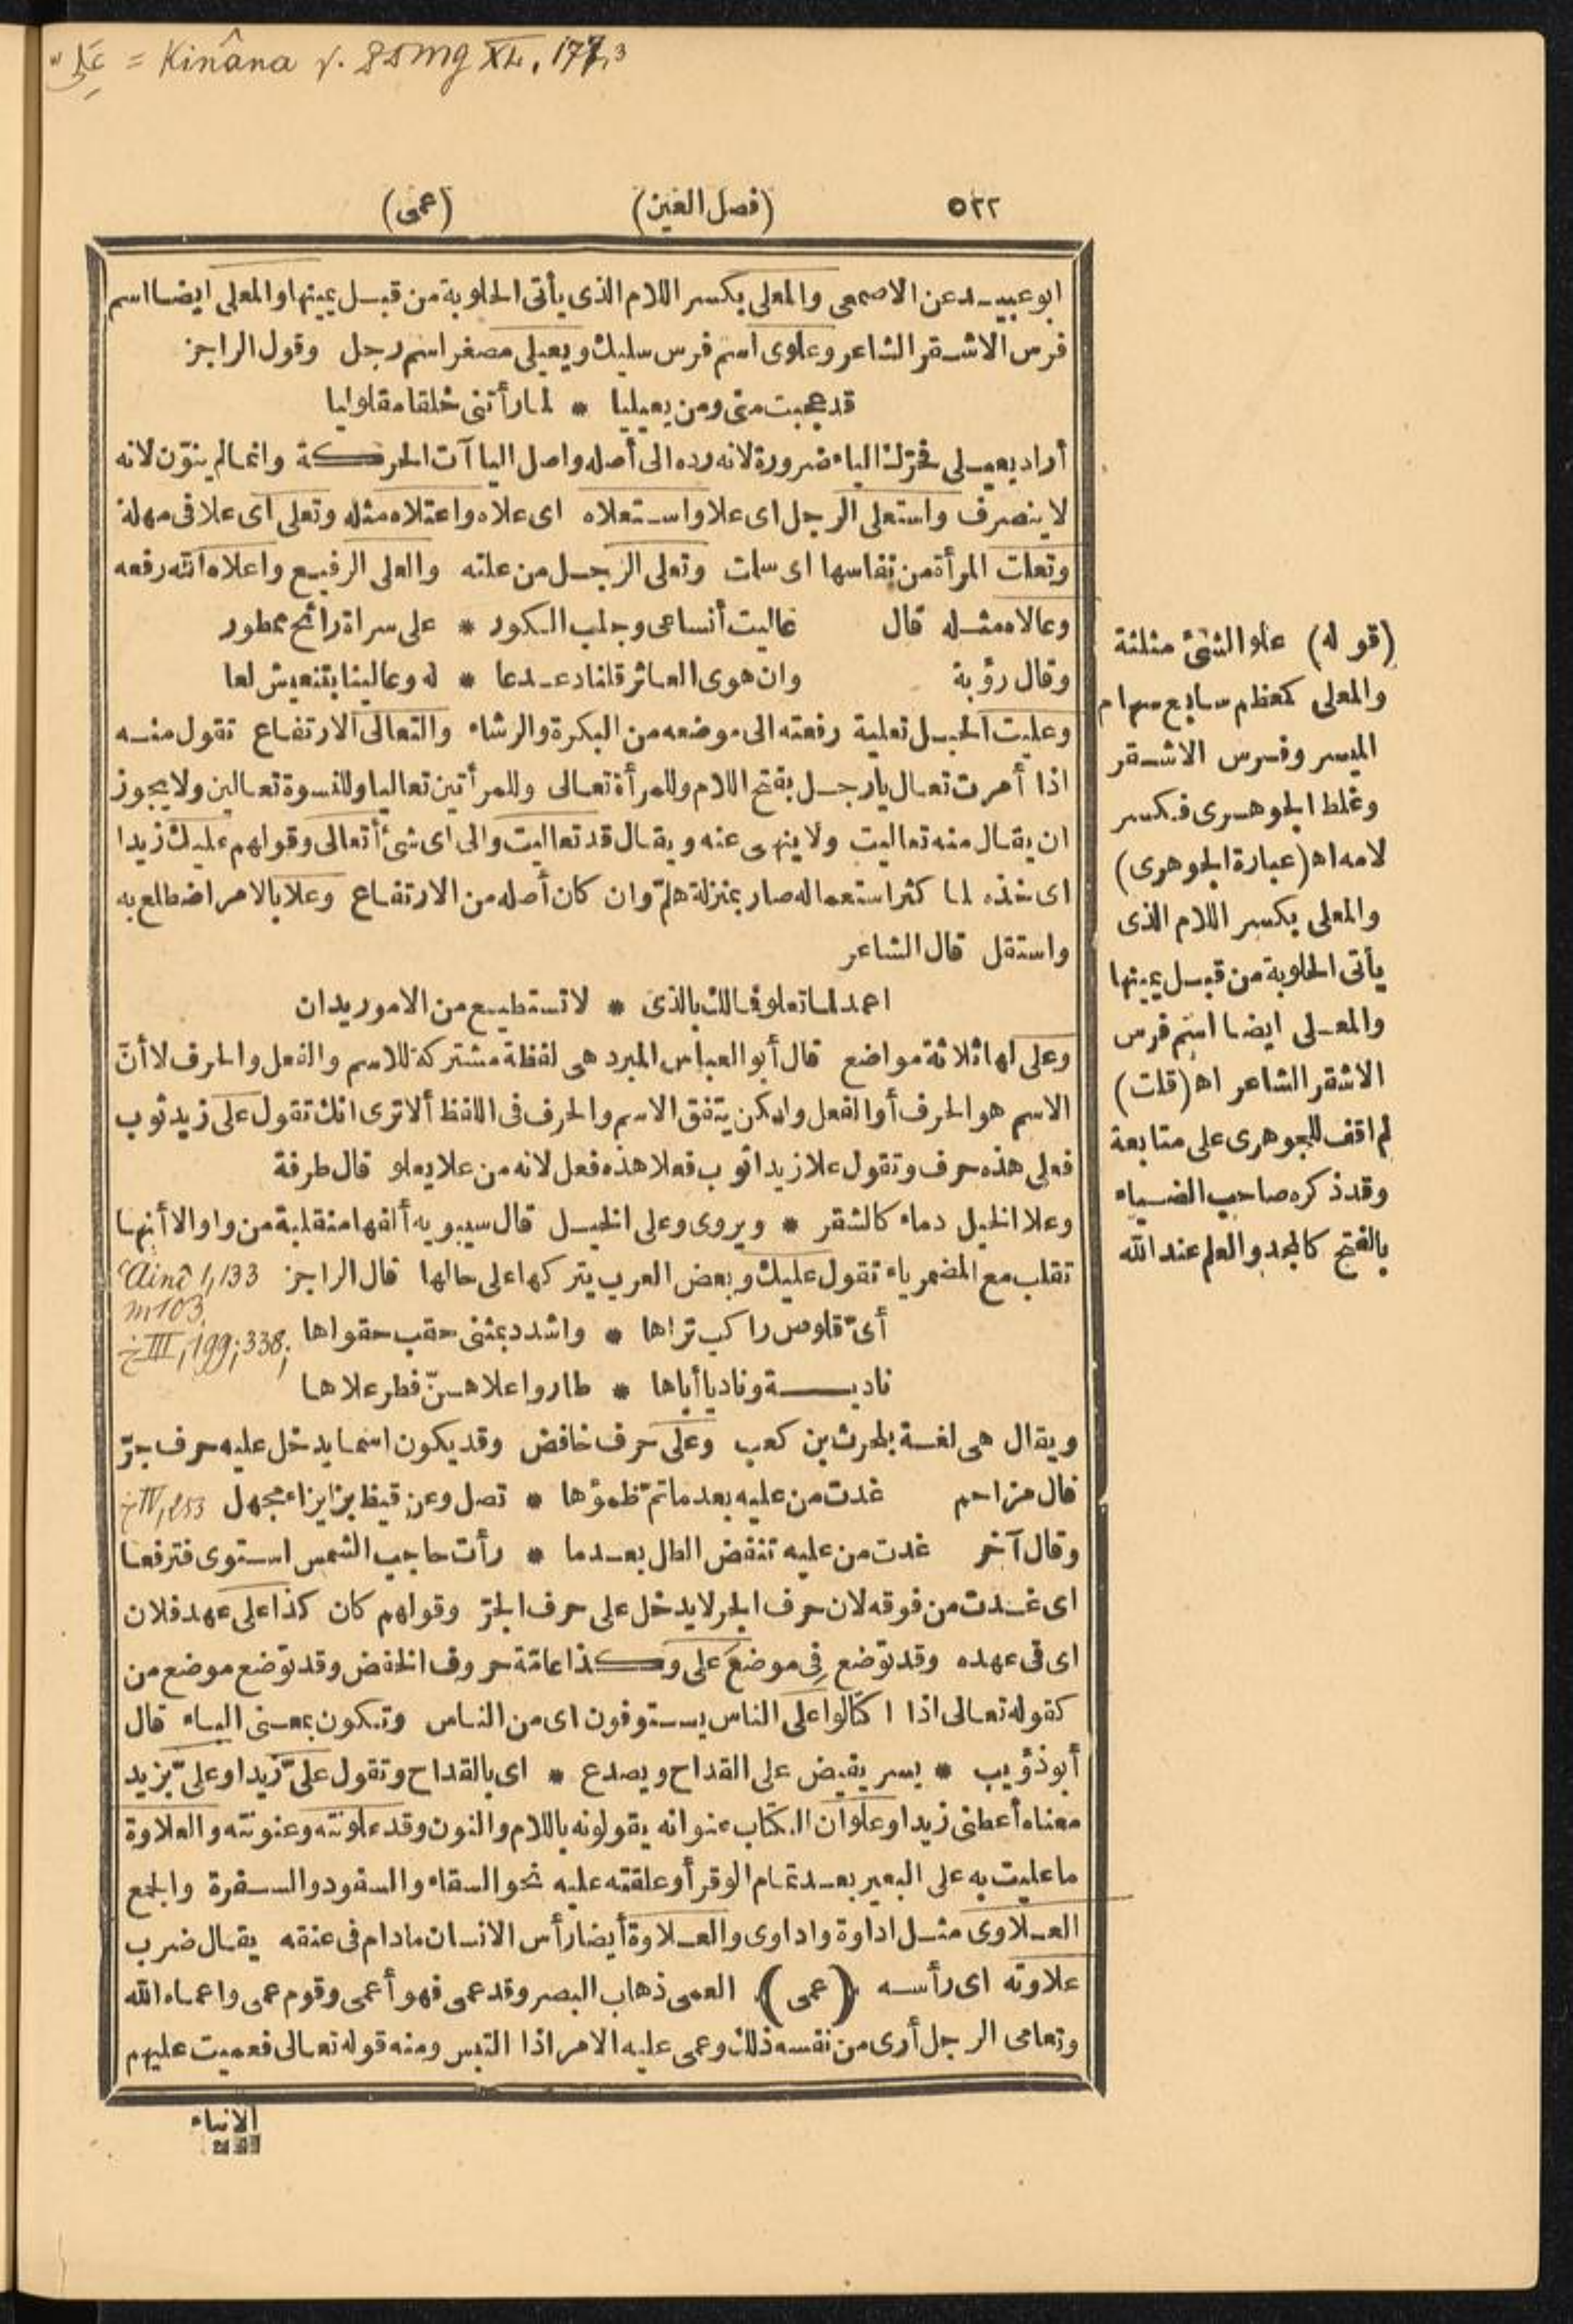 علي = Kinâna v. ZDmg XL, 177,3
٥٢٢ (فصل العين) (عمى)
ابو عبيد عن الاصمعى والمعلى بكسر اللام الذى يأتى الحلوبة من قبل يمينها والمعلى ايضا اسم
فرس الاشقر الشاعر وعلوى اسم فرس سليك ويعيلى مصغر اسم رجل وقول الراجز
قد عجبت منى ومن يعيليا * لما رأتنى خلقا مقلوليا
أراد يعيلى فحرّك الياء ضرورة لانه رده الى أصله واصل الياآت الحركة وانما لم ينوّن لانه
لا ينصرف واستعلى الرجل اى علا واستعلاه اى علاه واعتلاه مثله وتعلى اى علا فى مهلة
وتعلت المرأة من نفاسها اى سلمت وتعلى الرجل من علته والعلى الرفيع واعلاه الله رفعه
وعالاه مثله قال عاليت أنساعى وجلب الكور * على سراة رائح ممطور
وقال رؤبة وان هوى العاثر قلنا دعدعا * له وعالينا بتنعيش لعا
وعليت الحبل تعلية رفعته الى موضعه من البكرة والرشاء والتعالى الارتفاع تقول منه
اذا أمرت تعال يا رجل بفتح اللام وللمرأة تعالى وللمرأتين تعاليا وللنسوة تعالين ولا يجوز
ان يقال منه تعاليت ولا ينهى عنه ويقال قد تعاليت والى اى شئ أتعالى وقولهم عليك زيدا
اى خذه لما كثر استعماله صار بمنزلة هلمّ وان كان أصله من الارتفاع وعلا بالامر اضطلع به
واستقل قال الشاعر
اعمد لما تعلو فمالك بالذى * لا تستطيع من الامور يدان
وعلى لها ثلاثة مواضع قال أبو العباس المبرد هى لفظة مشتركة للاسم والفعل والحرف لا أنّ
الاسم هو الحرف أو الفعل ولكن يتفق الاسم والحرف فى اللفظ ألا ترى انك تقول على زيد ثوب
فعلى هذه حرف وتقول علا زيدا ثوب فعلا هذه فعل لانه من علا يعلو قال طرفة
وعلا الخيل دماء كالشقر * ويروى وعلى الخيل قال سيبويه ألفها منقلبة من واو الا أنها
تقلب مع المضمر ياء تقول عليك وبعض العرب يتركها على حالها قال الراجز ‘Ainî 1,133
m103.
أىّ قلوص راكب تراها * واشدد بمثنى حقب حقواها خ III, 199; 338;
نادية وناديا أباها * طاروا علاهنّ فطر علاها
ويقال هى لغة بلحرث بن كعب وعلى حرف خافض وقد يكون اسما يدخل عليه حرف جرّ
قال مزاحم غدت من عليه بعد ما تمّ ظمؤها * تصل وعن قيظ بزيزاء مجهل خ IV, 253
وقال آخر غدت من عليه تنفض الطل بعدما * رأت حاجب الشمس استوى فترفعا
اى غدت من فوقه لان حرف الجر لا يدخل على حرف الجرّ وقولهم كان كذا على عهد فلان
اى فى عهده وقد توضع فِى موضع على وكذا عامّة حروف الخفض وقد توضع موضع من
كقوله تعالى اذا اكتالوا على الناس يستوفون اى من الناس وتكون بمعنى الباء قال
أبو ذؤيب * يسر يفيض على القداح ويصدع * اى بالقداح وتقول علىّ زيدا وعلىّ بزيد
معناه أعطنى زيدا وعلوان الكتاب عنوانه يقولونه باللام والنون وقد علونته وعنونته والعلاوة
ما عليت به على البعير بعد تمام الوقر أو علقته عليه نحو السقاء والسفود والسفرة والجمع
العلاوى مثل اداوة واداوى والعلاوة أيضا رأس الانسان ما دام فى عنقه يقال ضرب
علاوته اى رأسه (عمى) العمى ذهاب البصر وقد عمى فهو أعمى وقوم عمى واعماه الله
وتعامى الرجل أرى من نفسه ذلك وعمى عليه الامر اذا التبس ومنه قوله تعالى فعميت عليهم
الانباء
(قوله) علو الشئ مثلثة
والمعلى كمعظم سابع سهام
الميسر وفرس الاشقر
وغلط الجوهرى فكسر
لامه اه (عبارة الجوهرى)
والمعلى بكسر اللام الذى
يأتى الحلوبة من قبل يمينها
والمعلى ايضا اسم فرس
الاشقر الشاعر اه (قلت)
لم اقف للجوهرى على متابعة
وقد ذكره صاحب الضياء
بالفتح كالمجد والعلم عند الله